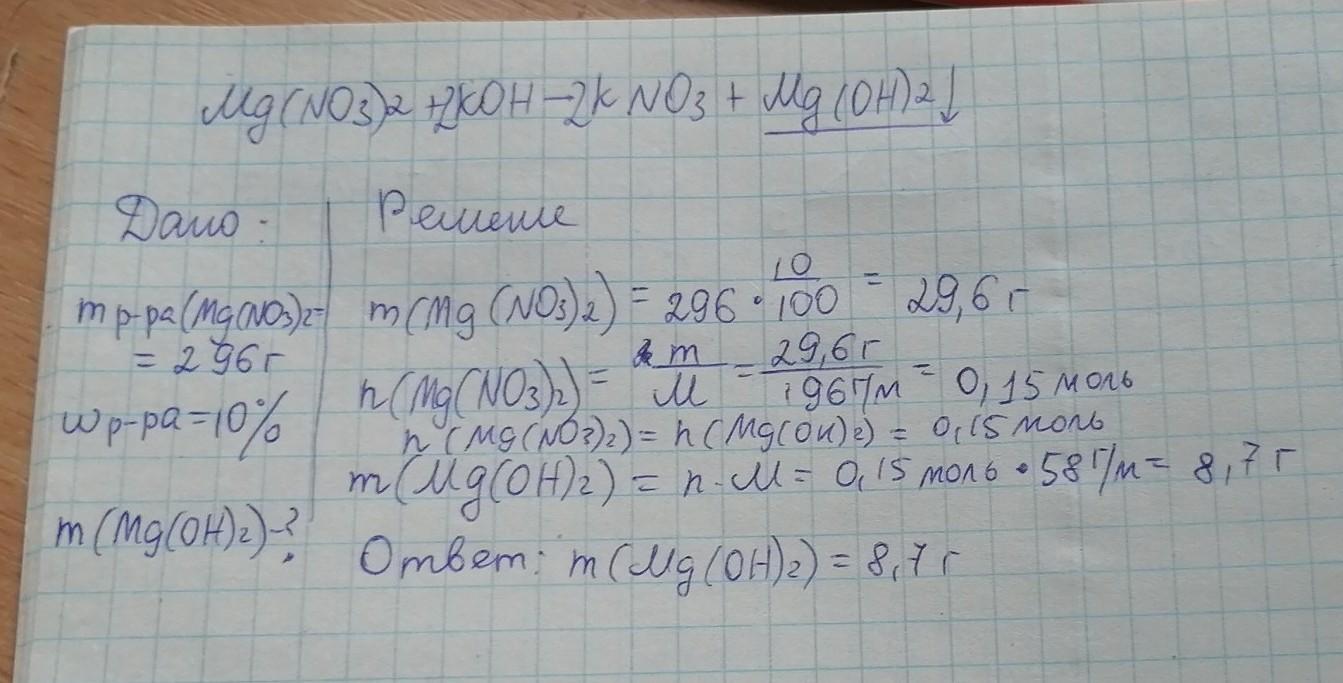 Mg(NO3)2 +2KOH—2KNO3 + Mg(OH)2↓
Дано:
mр-ра(Mg(NO3)2=
= 296г
wр-ра=10%
m(Mg(OH)2)-?
Решение
m(Mg(NO3)2) = 296 · 10/100 = 29,6 г
n(Mg(NO3)2) = m/M = 29,6г/196г/м = 0,15 моль
n(Mg(NO3)2) = n(Mg(OH)2) = 0,15 моль
m(Mg(OH)2) = n · M = 0,15 моль · 58г/м = 8,7 г
Ответ: m(Mg(OH)2) = 8,7 г